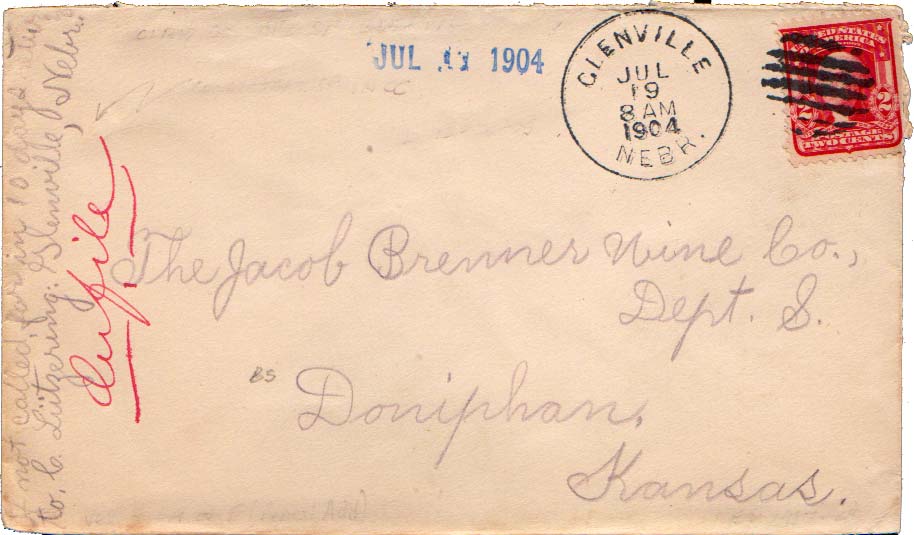 JUL 1904
GLENVILLE
JUL
19
8 AM
1904
NEBR.
UNITED STATES
AMERICA
2 2
POSTAGE
TWO CENTS
not called for in 10 days
to, C. Lützering. Glenville, Nebr.
The Jacob Brenner Wine Co.,
Dept. S.
BS
Doniphan,
Kansas.